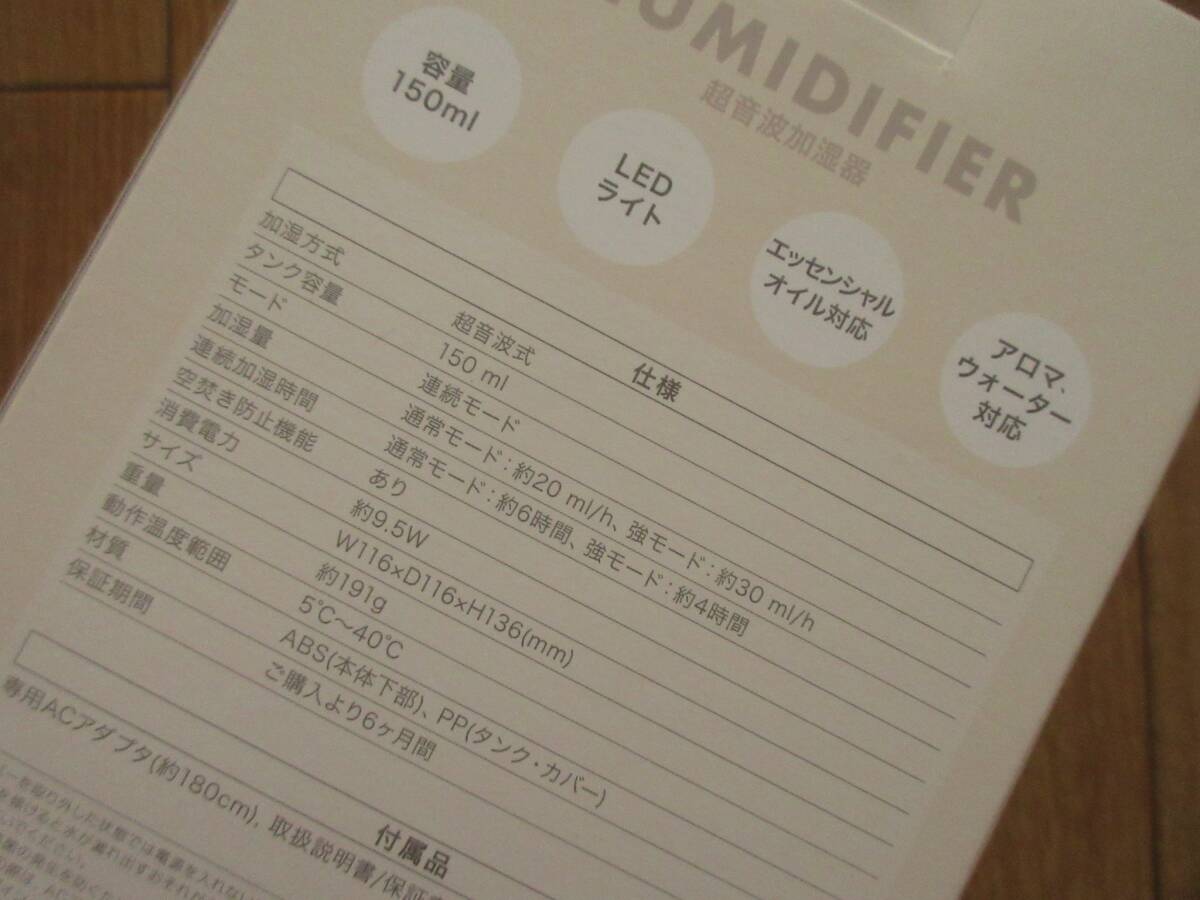 UMIDIFIER
超音波加湿器
容量
150ml
LED
ライト
エッセンシャル
オイル対応
アロマ、
ウオーター
対応
仕様
加湿方式 超音波式
タンク容量 150 ml
モード 連続モード
加湿量 通常モード：約20 ml/h、強モード：約30 ml/h
連続加湿時間 通常モード：約6時間、強モード：約4時間
空焚き防止機能 あり
消費電力 約9.5W
サイズ W116×D116×H136(mm)
重量 約191g
動作温度範囲 5℃～40℃
材質 ABS(本体下部)、PP(タンク・カバー)
保証期間 ご購入より6ヶ月間
付属品
専用ACアダプタ(約180cm), 取扱説明書/保証
ーを取り外した状態では電源を入れない
を傾けると水が漏れ出すおそれが
いでください。